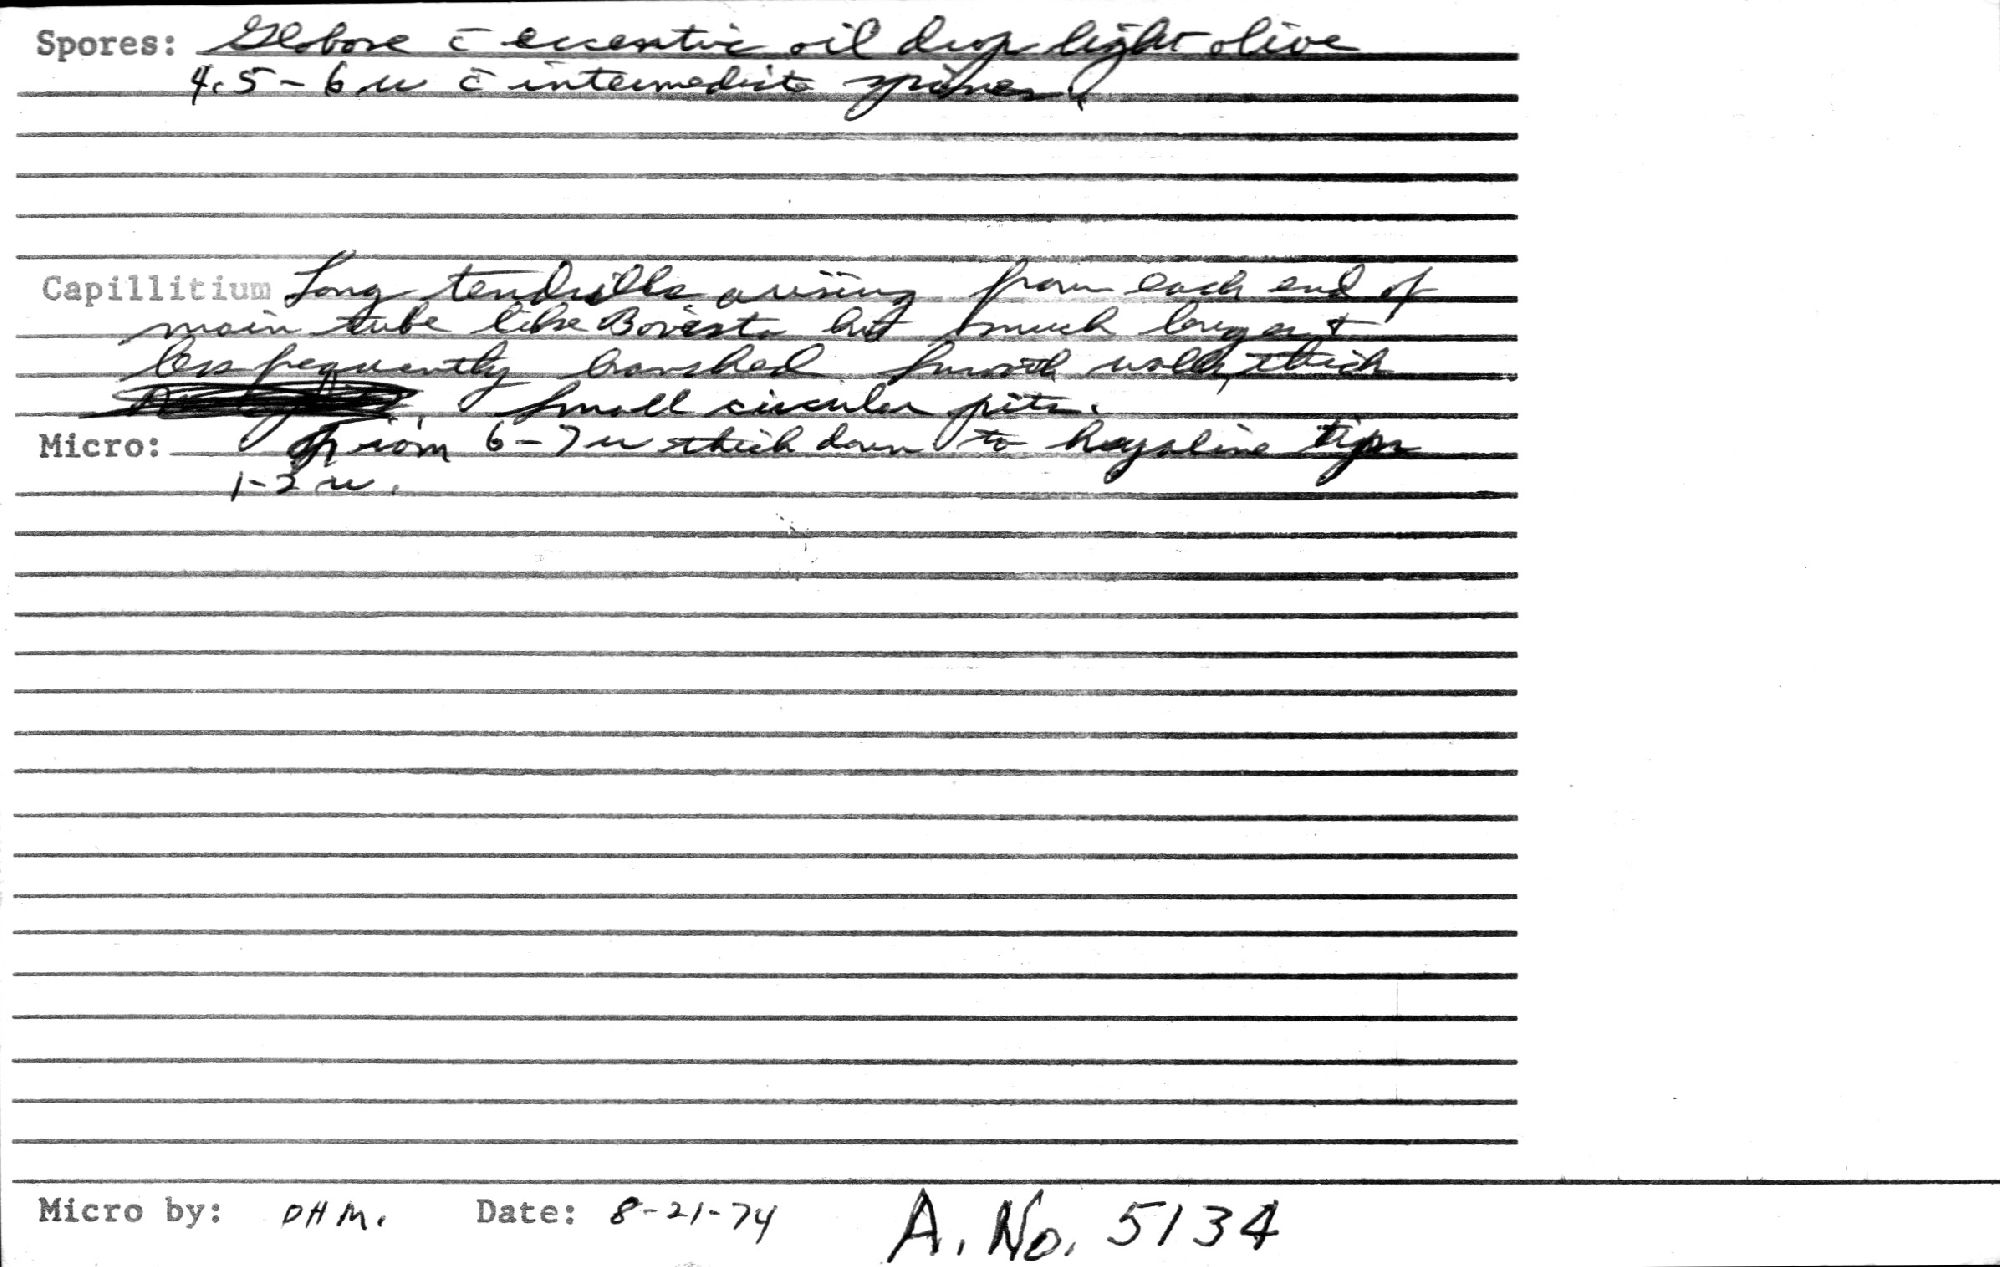 Spores: Globose c̄ eccentric oil drop light olive
4.5-6 u c̄ intermediate spines.
Capillitium Long tendrills arising from each end of
main tube like Bovista but much longer +
less frequently branched smooth walls, thick
Small circular pits.
Micro: From 6-7 u thick down to hayaline tips
1-2 u.
Micro by: DHM. Date: 8-21-74 A. No. 5134